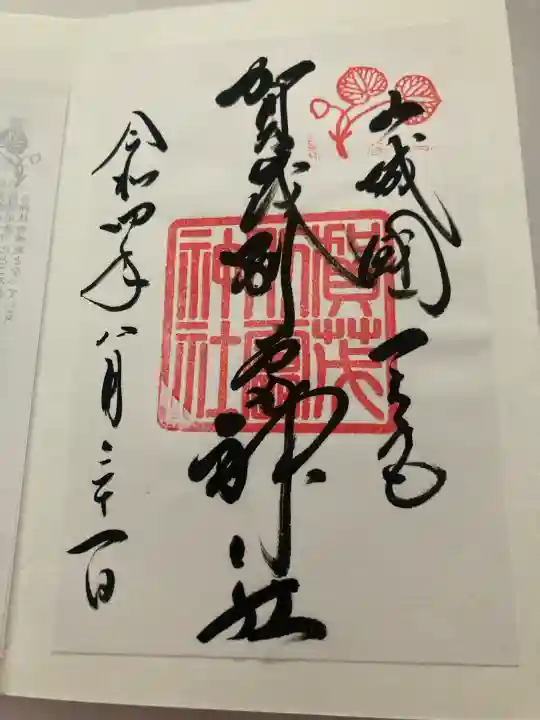 山城國一之宮
賀茂別雷神社
賀茂別雷神社
令和四年八月二十一日